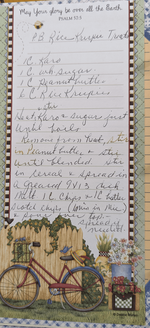 May Your glory be over all the Earth
PSALM 57:5
PB Rice Krispie Treat
1 C Karo
1 C sugar
1 C Peanut butter
6 C Rice Krispies
Heat Karo & sugar just
until boils
Remove from heat, stir
in Peanut butter & stir
until blended stir
in cereal & spread in
a greased 9x13 dish
Melt 1 C chips & 1 C butter
scotch chips (
& over top
spread